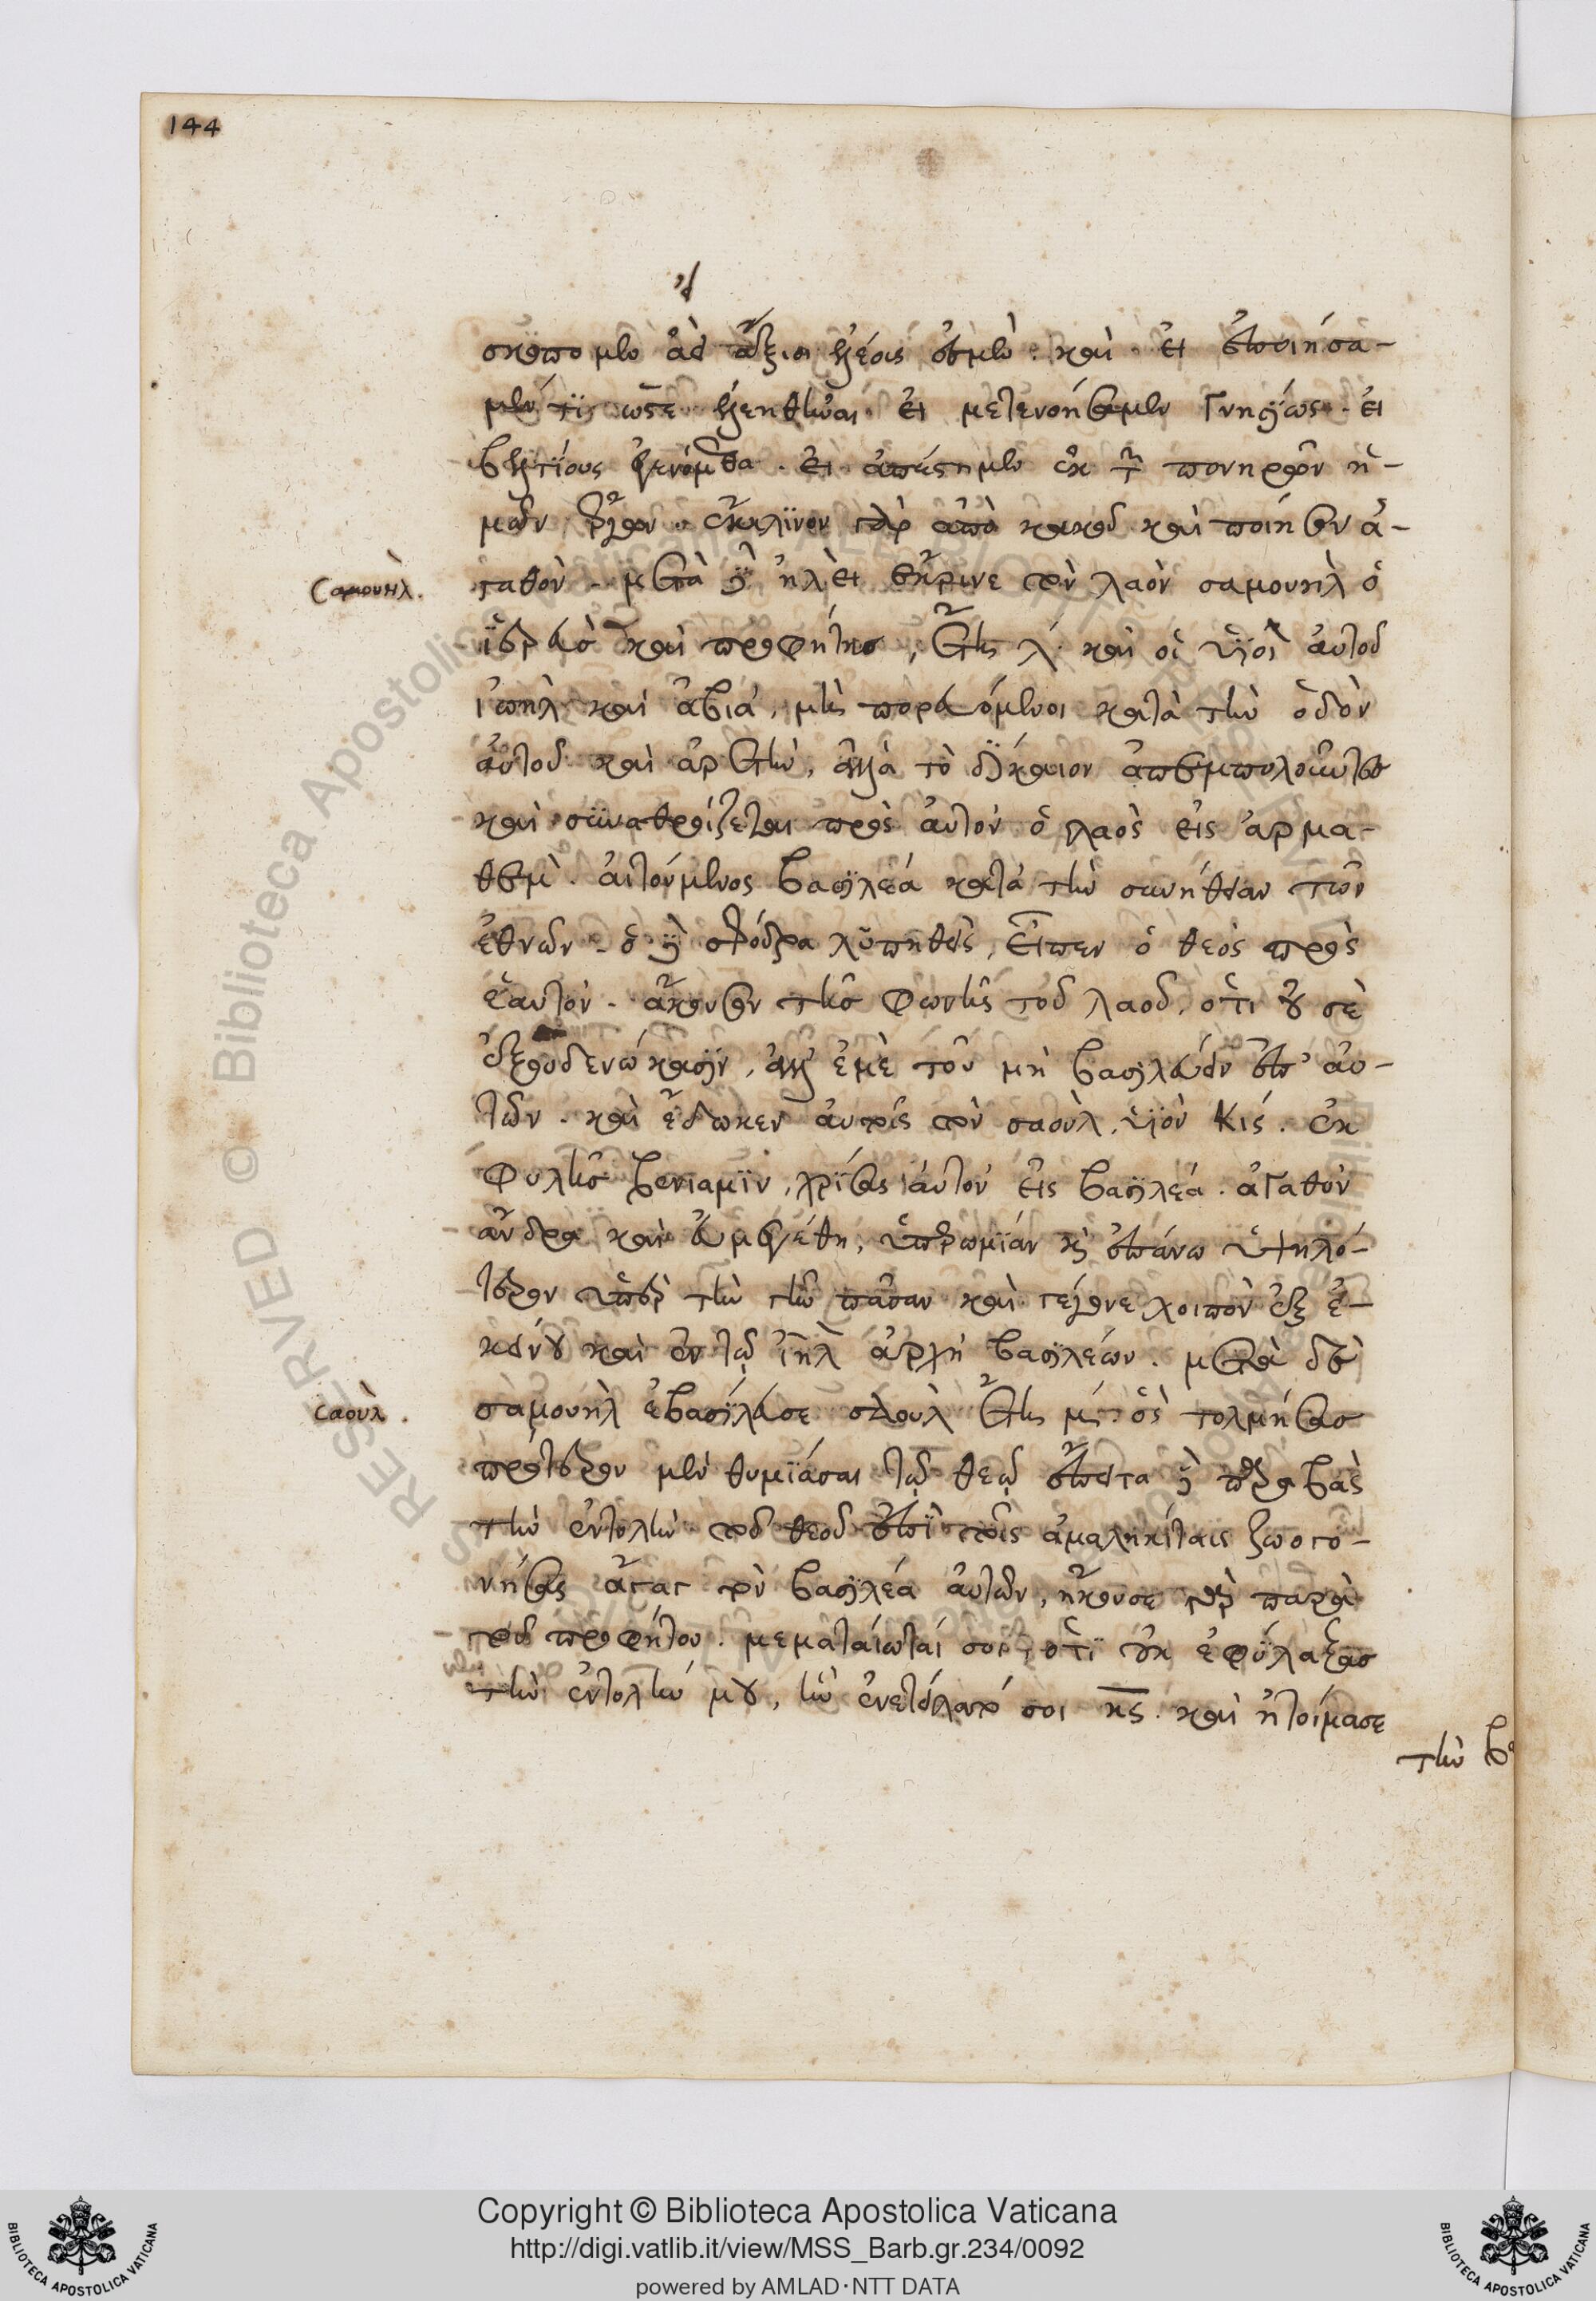 144
σκοπομεν ἀεὶ ἄξιοι ἐλέους ἐσμὲν. καὶ εἰ ἐποιήσα-
μέν τϊ ὥστε ἐλεηθῆναι. εἰ μετενοήσαμεν γνησίως. εἰ
βελτίους ἐγενόμεθα. εἰ ἀπέστημεν ἐκ τῶν πονηρῶν ἡ-
μῶν ἔργων. ἔκκλϊνον γὰρ ἀπὸ κακοῦ καὶ ποίησον ἀ-
γαθὸν. μετὰ δὲ ἠλεὶ ἔκρινε τὸν λαὸν σαμουὴλ ὁ
Σαμουὴλ.
ϊερεὺς καὶ προφήτης, ἔτη λ. καὶ οἱ υἱοὶ αὐτοῦ
ἰωὴλ καὶ ἀβιά, μὴ πορευόμενοι κατὰ τὴν ὁδὸν
αὐτοῦ καὶ ἀρετὴν, ἀλλὰ τὸ δίκαιον ἀπεμπολοῦντες
καὶ συναθροίζεται πρὸς αὐτὸν ὁ λαὸς εἰς ἀρμα-
θεμ. αἰτούμενος βασιλέα κατὰ τὴν συνήθειαν τῶν
ἐθνῶν. ὁ δὲ σφόδρα λυπηθεὶς, εἶπεν ὁ θεὸς πρὸς
ἑαυτὸν. ἄκουσον τῆς φωνῆς τοῦ λαοῦ, ὅτι οὐ σὲ
ἐξουδενώκασιν, ἀλλ' ἐμὲ τοῦ μὴ βασιλεύειν ἐπ' αὐ-
τῶν. καὶ ἔδωκεν αὐτοῖς τὸν σαοὺλ, υἱὸν κίς. ἐκ
φυλῆς βενιαμϊν, χρίσας αὐτὸν εἰς βασιλέα. ἀγαθὸν
ἄνδρα καὶ εὐμεγέθη, ὑπερωμίαν καὶ ἐπάνω ὑψηλό-
τερον ὑπὲρ τὴν γῆν πᾶσαν καὶ γέγονε λοιπὸν ἐξ ἐ-
κείνου καὶ ἐν τῷ ιηλ ἀρχὴ βασιλέων. μετὰ δὲ
σαμουὴλ ἐβασίλευσε σαοὺλ ἔτη μ. ὃς τολμήσας
Σαοὺλ.
πρότερον μὲν θυμϊάσαι τῷ θεῷ ἔπειτα δὲ παραβὰς
τὴν ἐντολὴν τοῦ θεοῦ ἐπὶ τοῖς ἀμαληκίταις ζωογο-
νήσας ἄγαγ τὸν βασιλέα αὐτῶν, ἤκουσε παρὰ
τοῦ προφήτου. μεματαίωταί σοι, ὅτϊ οὐκ ἐφύλαξας
τὴν ἐντολὴν μου, ἣν ἐνετείλατό σοι κς. καὶ ἡτοίμασε
τὴν β
Copyright © Biblioteca Apostolica Vaticana
http://digi.vatlib.it/view/MSS_Barb.gr.234/0092
powered by AMLAD·NTT DATA
BIBLIOTECA APOSTOLICA VATICANA
BIBLIOTECA APOSTOLICA VATICANA